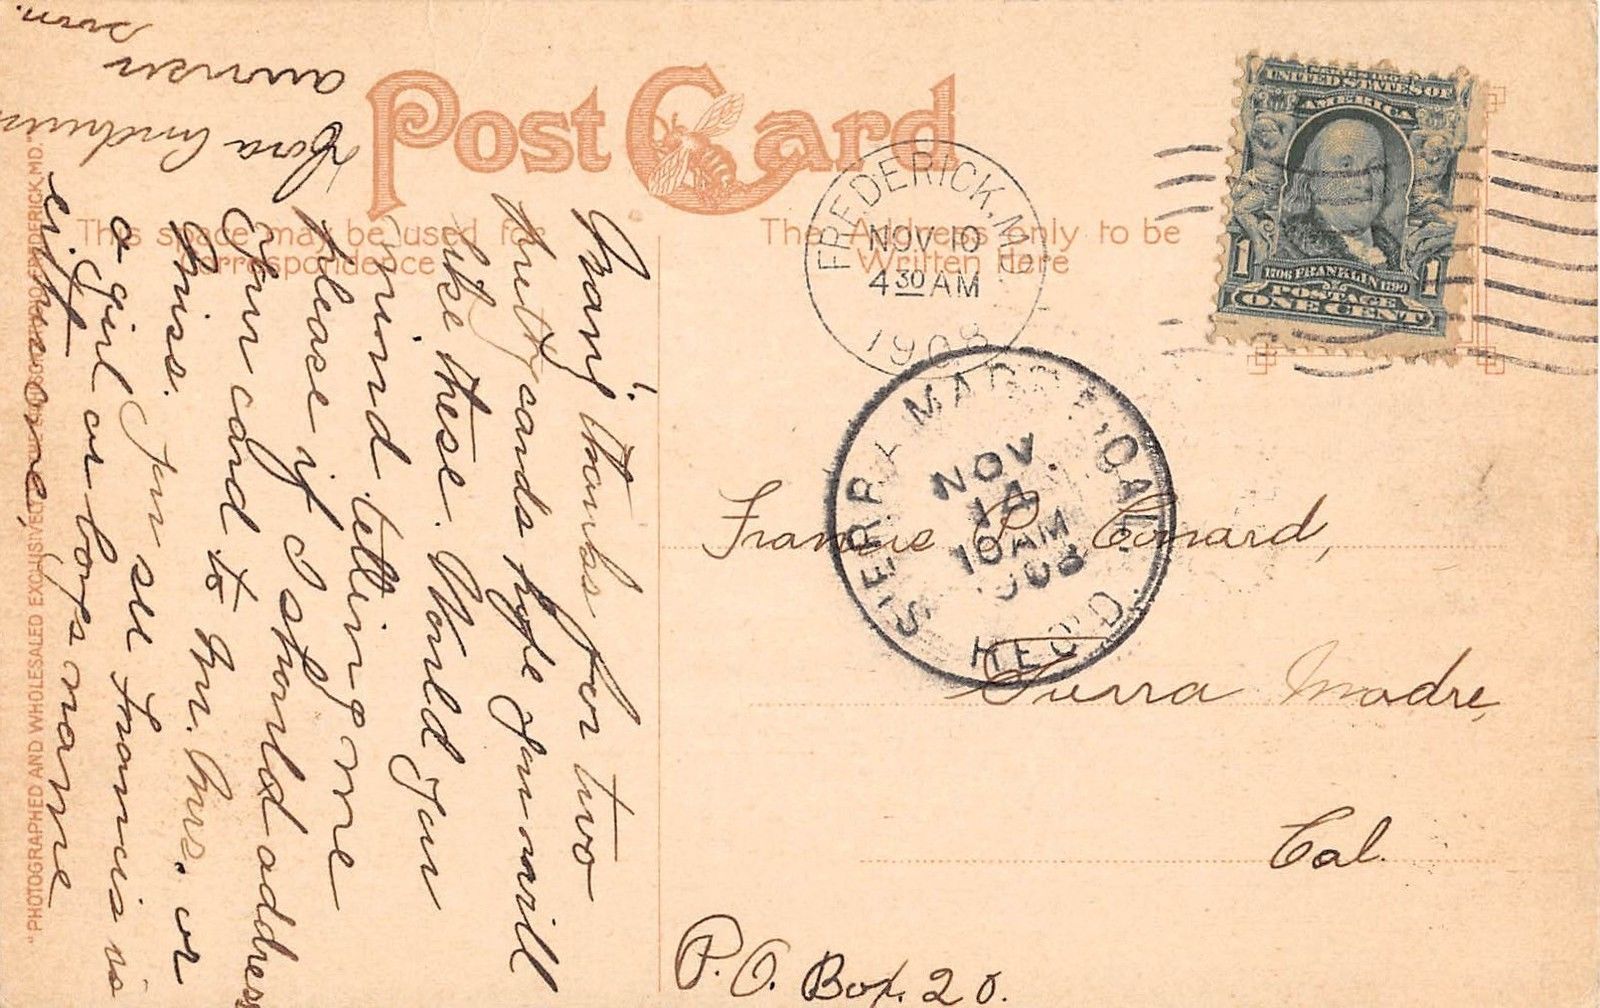 Post Card
This space may be used for
Correspondence
The Address only to be
Written Here
FREDERICK, MD.
NOV 10
4 30 AM
1908
UNITED STATES OF
AMERICA
1706 FRANKLIN 1790
POSTAGE
1 ONE CENT 1
SIERRA MADRE, CAL.
NOV.
14
10 AM
1908
REC'D.
Francis P. Conard,
Sierra Madre,
Cal.
P.O. Box. 20.
Many thanks for two
pretty cards hope you will
like these. Would you
mind telling me
please if I should address
your card to Mr. Mrs. or
Miss. You see Francis is
a girl or boys name
either one,
Cora
answer
soon.
"PHOTOGRAPHED AND WHOLESALED EXCLUSIVELY FREDERICK, MD."